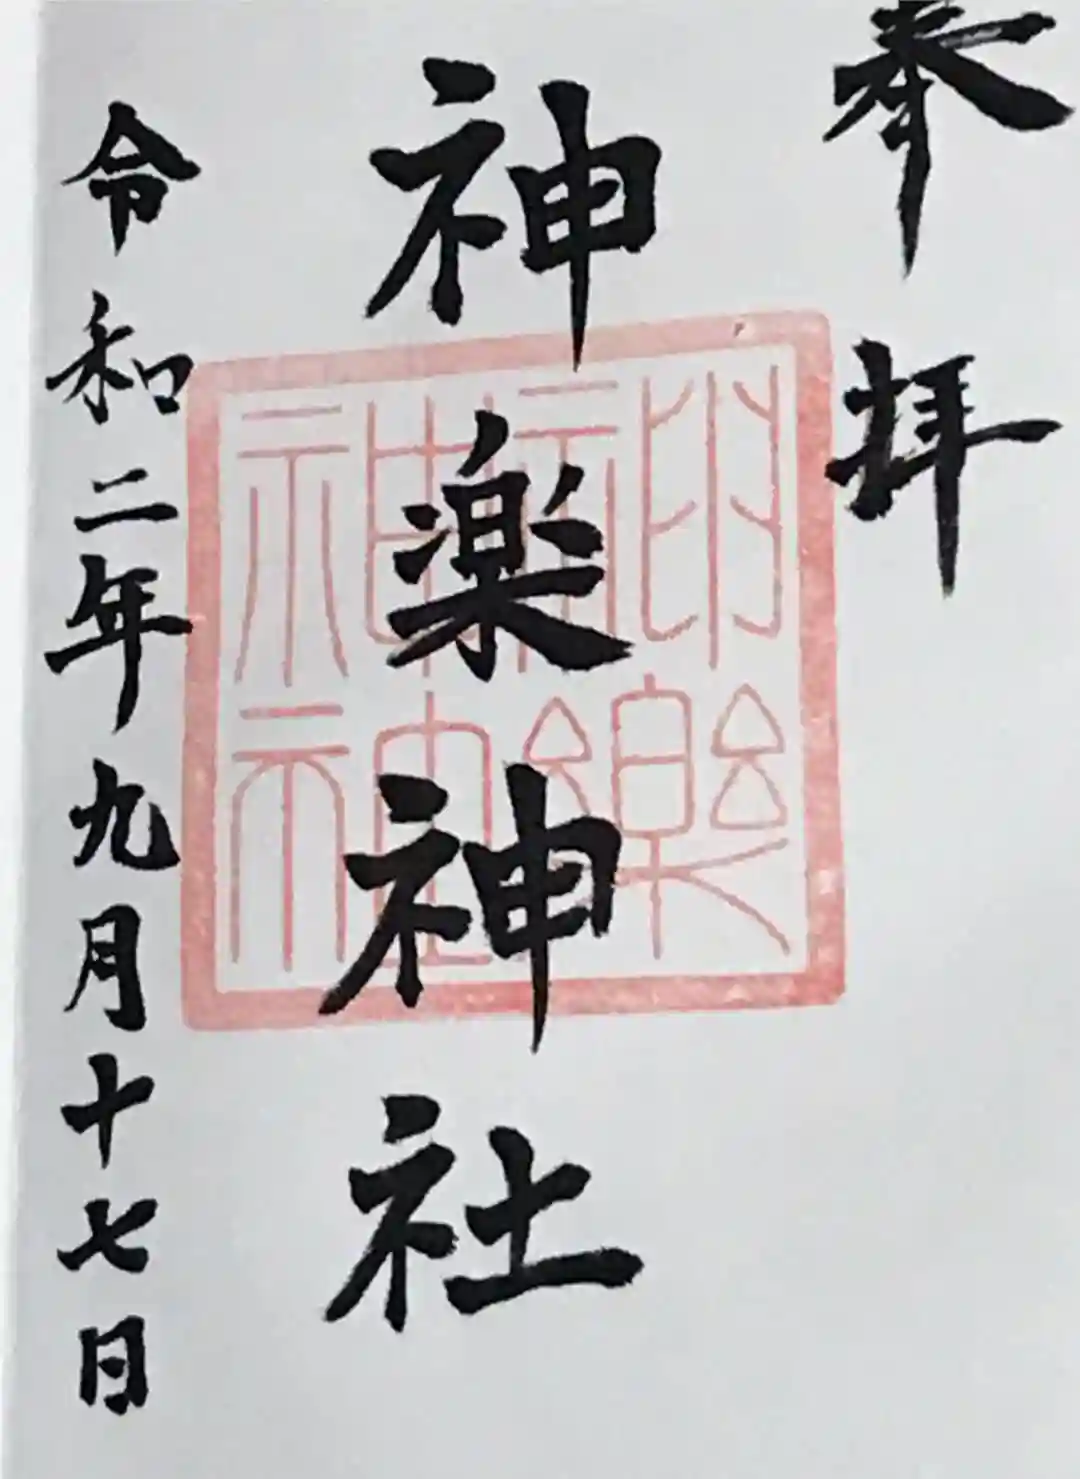 奉拝
神楽神社
神楽神社
令和二年九月十七日